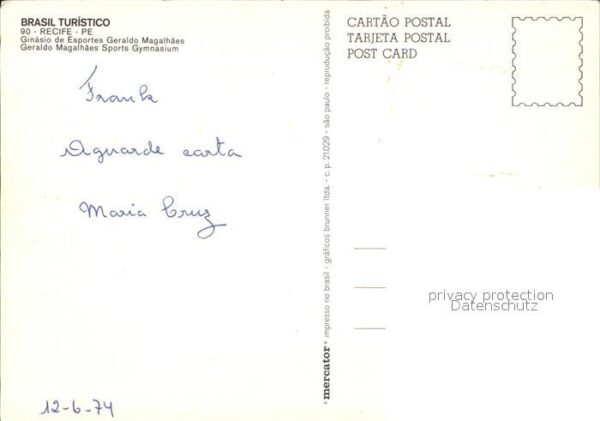 BRASIL TURÍSTICO
90 - RECIFE - PE
Ginásio de Esportes Geraldo Magalhães
Geraldo Magalhães Sports Gymnasium
Frank
Aguarde carta
Maria Cruz
12-6-74
mercator impresso no brasil - gráficos brunner ltda. - c. p. 21029 - são paulo - reprodução proibida
CARTÃO POSTAL
TARJETA POSTAL
POST CARD
privacy protection
Datenschutz